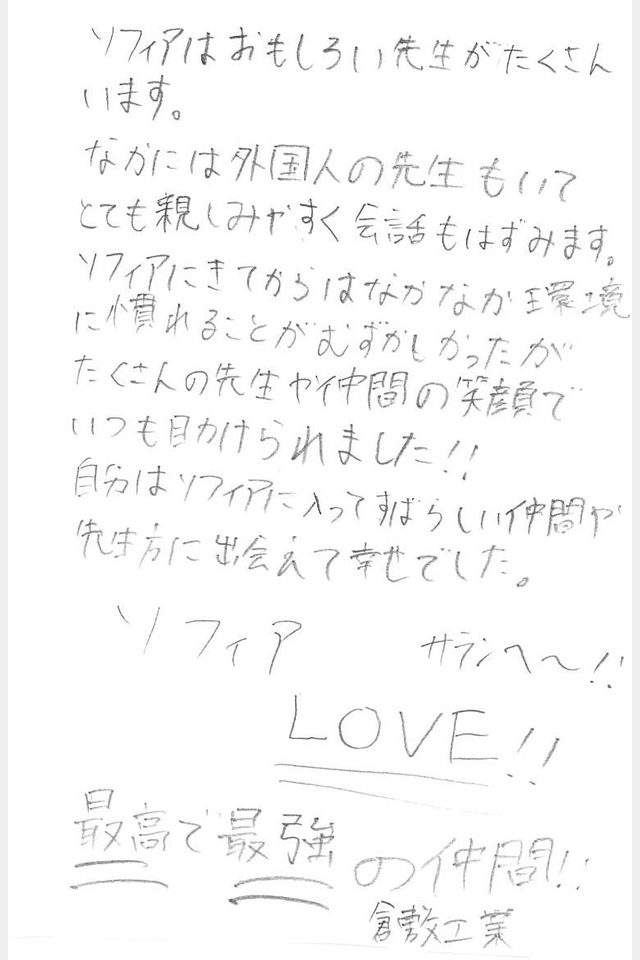 ソフィアはおもしろい先生がたくさん
います。
なかには外国人の先生もいて
とても親しみやすく会話もはずみます。
ソフィアにきてからはなかなか環境
に慣れることがむずかしかったが
たくさんの先生や仲間の笑顔で
いつも助けられました!!
自分はソフィアに入ってすばらしい仲間や
先生方に出会えて幸せでした。
ソフィア サランヘ〜!!
LOVE!!
最高で最強の仲間!!
倉敷工業